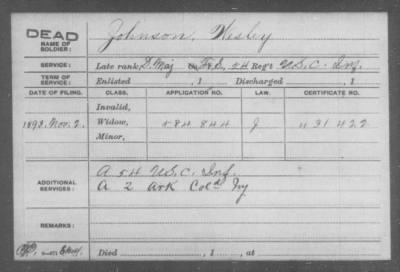 DEAD
NAME OF SOLDIER: Johnson, Wesley
SERVICE: Late rank, S. Maj F&S, 54 Reg't U.S.C. Inf.
TERM OF SERVICE: Enlisted , 1 Discharged , 1
DATE OF FILING. CLASS. APPLICATION NO. LAW. CERTIFICATE NO.
Invalid,
1893. Nov. 2. Widow, 584844 431422
Minor,
ADDITIONAL SERVICES: A 54 U.S.C. Inf.
A 2 Ark Col'd Inf
REMARKS:
Died , 1 , at